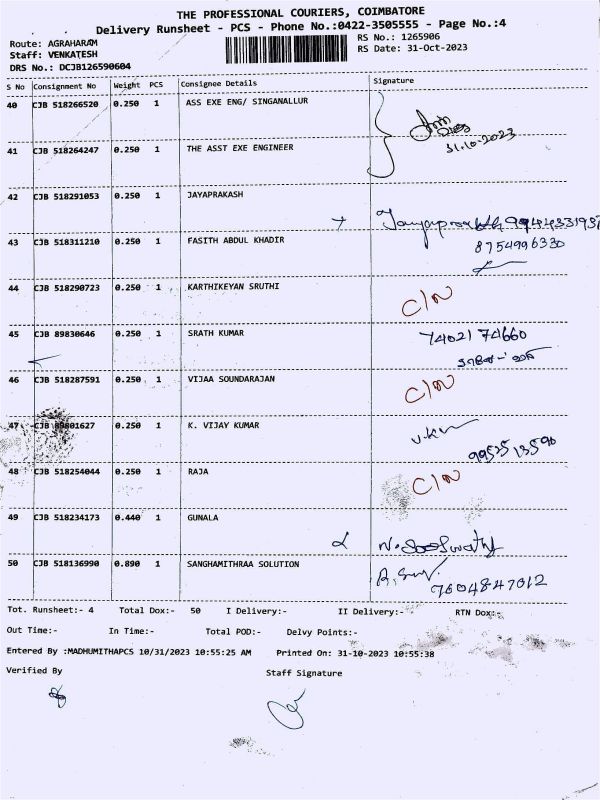 THE PROFESSIONAL COURIERS, COIMBATORE
Delivery Runsheet - PCS - Phone No.:0422-3505555 - Page No.:4
Route: AGRAHARAM RS No.: 1265906
Staff: VENKATESH RS Date: 31-Oct-2023
DRS No.: DCJB126590604
S No Consignment No Weight PCS Consignee Details Signature
40 CJB 518266520 0.250 1 ASS EXE ENG/ SINGANALLUR
31.10.2023
41 CJB 518264247 0.250 1 THE ASST EXE ENGINEER
42 CJB 518291053 0.250 1 JAYAPRAKASH
43 CJB 518311210 0.250 1 FASITH ABDUL KHADIR 8754996330
44 CJB 518290723 0.250 1 KARTHIKEYAN SRUTHI C/N
45 CJB 89830646 0.250 1 SRATH KUMAR 74021 74660
46 CJB 518287591 0.250 1 VIJAA SOUNDARAJAN C/N
47 CJB 89801627 0.250 1 K. VIJAY KUMAR
9952513590
48 CJB 518254044 0.250 1 RAJA C/N
49 CJB 518234173 0.440 1 GUNALA
50 CJB 518136990 0.890 1 SANGHAMITHRAA SOLUTION
7604847012
Tot. Runsheet:- 4 Total Dox:- 50 I Delivery:- II Delivery:- RTN Dox:-
Out Time:- In Time:- Total POD:- Delvy Points:-
Entered By :MADHUMITHAPCS 10/31/2023 10:55:25 AM Printed On: 31-10-2023 10:55:38
Verified By Staff Signature